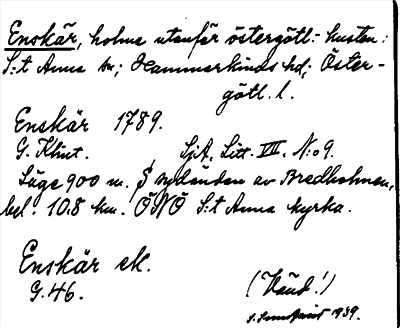 Enskär, holme utanför östergötl.-kusten:
S:t Anna sn; Hammarkinds hd; Öster-
götl. l.
Enskär 1789.
G. Klint. SjA. Litt. VIII. N:o 9.
Läge 900 m. S sydändan av Bredholmen,
bel. 10.8 km. ÖNÖ S:t Anna kyrka.
Enskär ek.
G. 46.
(Känd!)
1939.